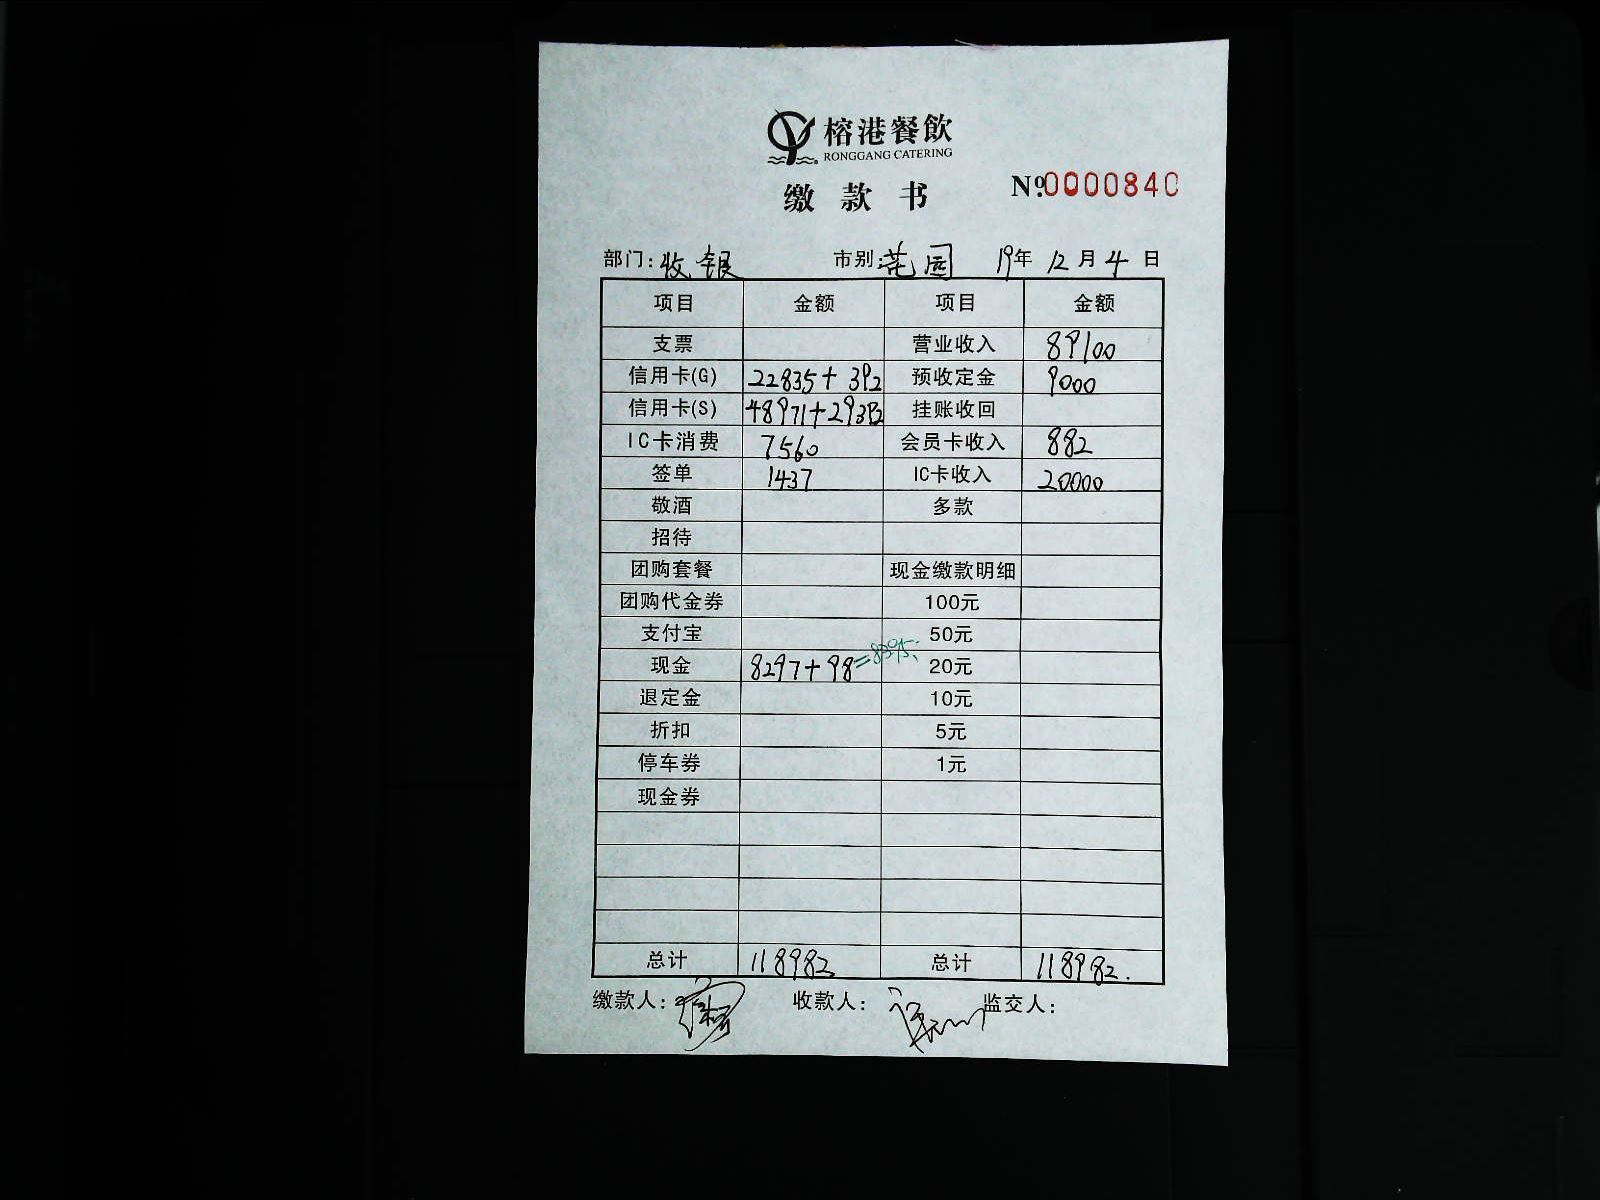 榕港餐飲
RONGGANG CATERING
缴款书 №0000840
部门:收银 市别:花园 19年12月4日
项目 金额 项目 金额
支票 营业收入 89100
信用卡(G) 22835+392 预收定金 9000
信用卡(S) 48971+29392 挂账收回
IC卡消费 7560 会员卡收入 882
签单 1437 IC卡收入 20000
敬酒 多款
招待
团购套餐 现金缴款明细
团购代金券 100元
支付宝 50元
现金 8297+98=8395. 20元
退定金 10元
折扣 5元
停车券 1元
现金券
总计 118982 总计 118982.
缴款人: 收款人: 监交人: